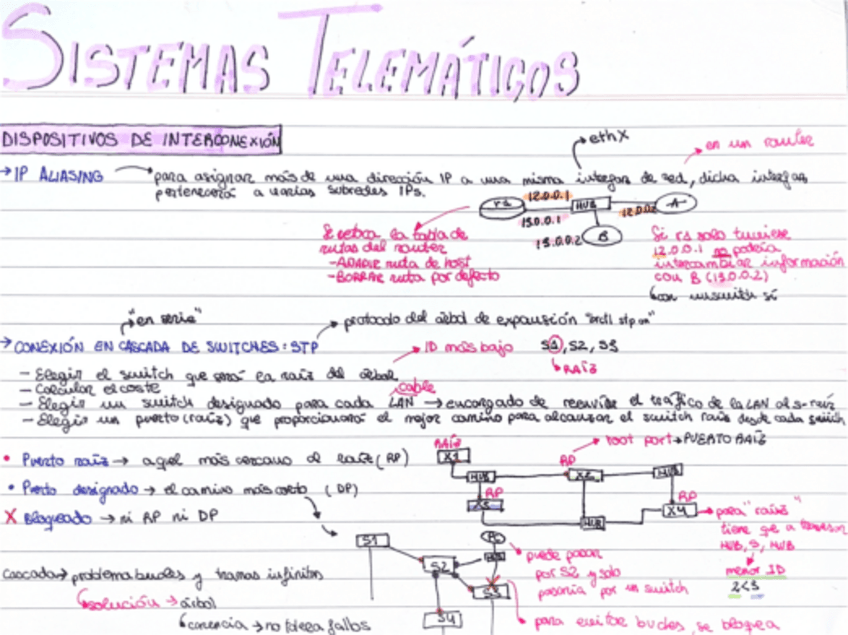 SISTEMAS TELEMÁTICOS
DISPOSITIVOS DE INTERCONEXIÓN
→ IP ALIASING → para asignar más de una dirección IP a una misma interfaz de red, dicha interfaz
pertenecerá a varias subredes IPs.
ethX
en un router
r1 12.0.0.1 HUB 12.0.0.2 A
13.0.0.1
13.0.0.2 B
Se retoca la tabla de
rutas del router
- AÑADIR ruta de host
- BORRAR ruta por defecto
Si r1 solo tuviese
12.0.0.1 no podría
intercambiar información
con B (13.0.0.2)
↳ con unswitch sí
"en serie"
→ CONEXIÓN EN CASCADA DE SWITCHES: STP
protocolo del árbol de expansión "brctl stp on"
→ ID más bajo S1, S2, S3
↳ RAÍZ
- Elegir el switch que será la raíz del árbol
- Calcular el coste
- Elegir un switch designado para cada LAN → encargado de reenviar el tráfico de la LAN al s-raíz
cable
- Elegir un puerto (raíz) que proporcionará el mejor camino para alcanzar el switch raíz desde cada switch
• Puerto raíz → aquel más cercano al raíz (RP)
• Puerto designado → el camino más corto (DP)
X Bloqueado → ni RP ni DP
RAÍZ
X1 HUB RP X2 HUB
root port → PUERTO RAÍZ
RP
X3 HUB
RP
X4 → para "raíz"
tiene que atravesar
HUB, S, HUB
menor ID
2<3
S1 PC
S2 HUB
S3
S4
puede pasar
por S2 y solo
pasaría por un switch
para evitar bucles, se bloquea
Cascada → problema bucles y tramas infinitas
↳ solución → árbol
↳ carencia → no tolera fallos